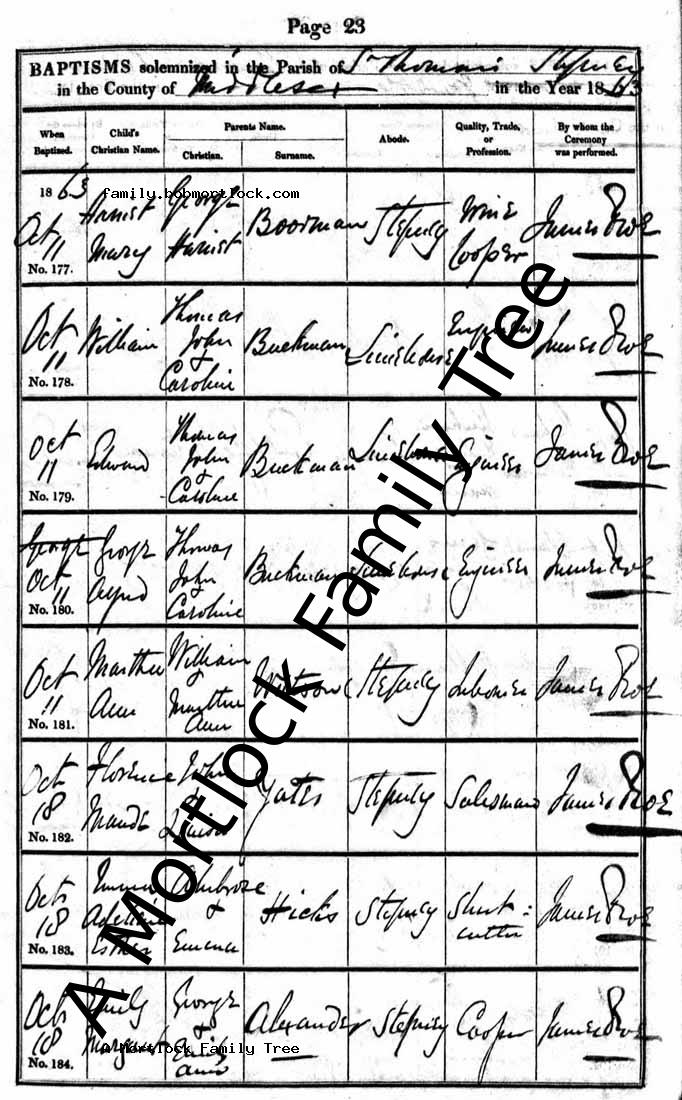 Page 23
BAPTISMS solemnized in the Parish of St Thomas's Stepney
in the County of Middlesex in the Year 1863
When Baptized. Child's Christian Name. Parents Name. Christian. Surname. Abode. Quality, Trade, or Profession. By whom the Ceremony was performed.
1863 family.bobmortlock.com
Oct 11 No. 177. Harriet Mary George Harriet Boorman Stepney Wine Cooper James Roe
Oct 11 No. 178. William Thomas John & Caroline Buckman Limehouse Engineer James Roe
Oct 11 No. 179. Edward Thomas John & Caroline Buckman Limehouse Engineer James Roe
George Oct 11 No. 180. George Alfred Thomas John Caroline Buckman Limehouse Engineer James Roe
Oct 11 No. 181. Martha Ann William & Martha Ann Watson Stepney Labourer James Roe
Oct 18 No. 182. Florence Maude John & Louisa Yates Stepney Salesman James Roe
Oct 18 No. 183. Emma Adelaide Esther Ambrose & Emma Hicks Stepney cutter James Roe
Oct 18 No. 184. Emily Margaret George & Ann Alexander Stepney Cooper James Roe
A Mortlock Family Tree
A Mortlock Family Tree